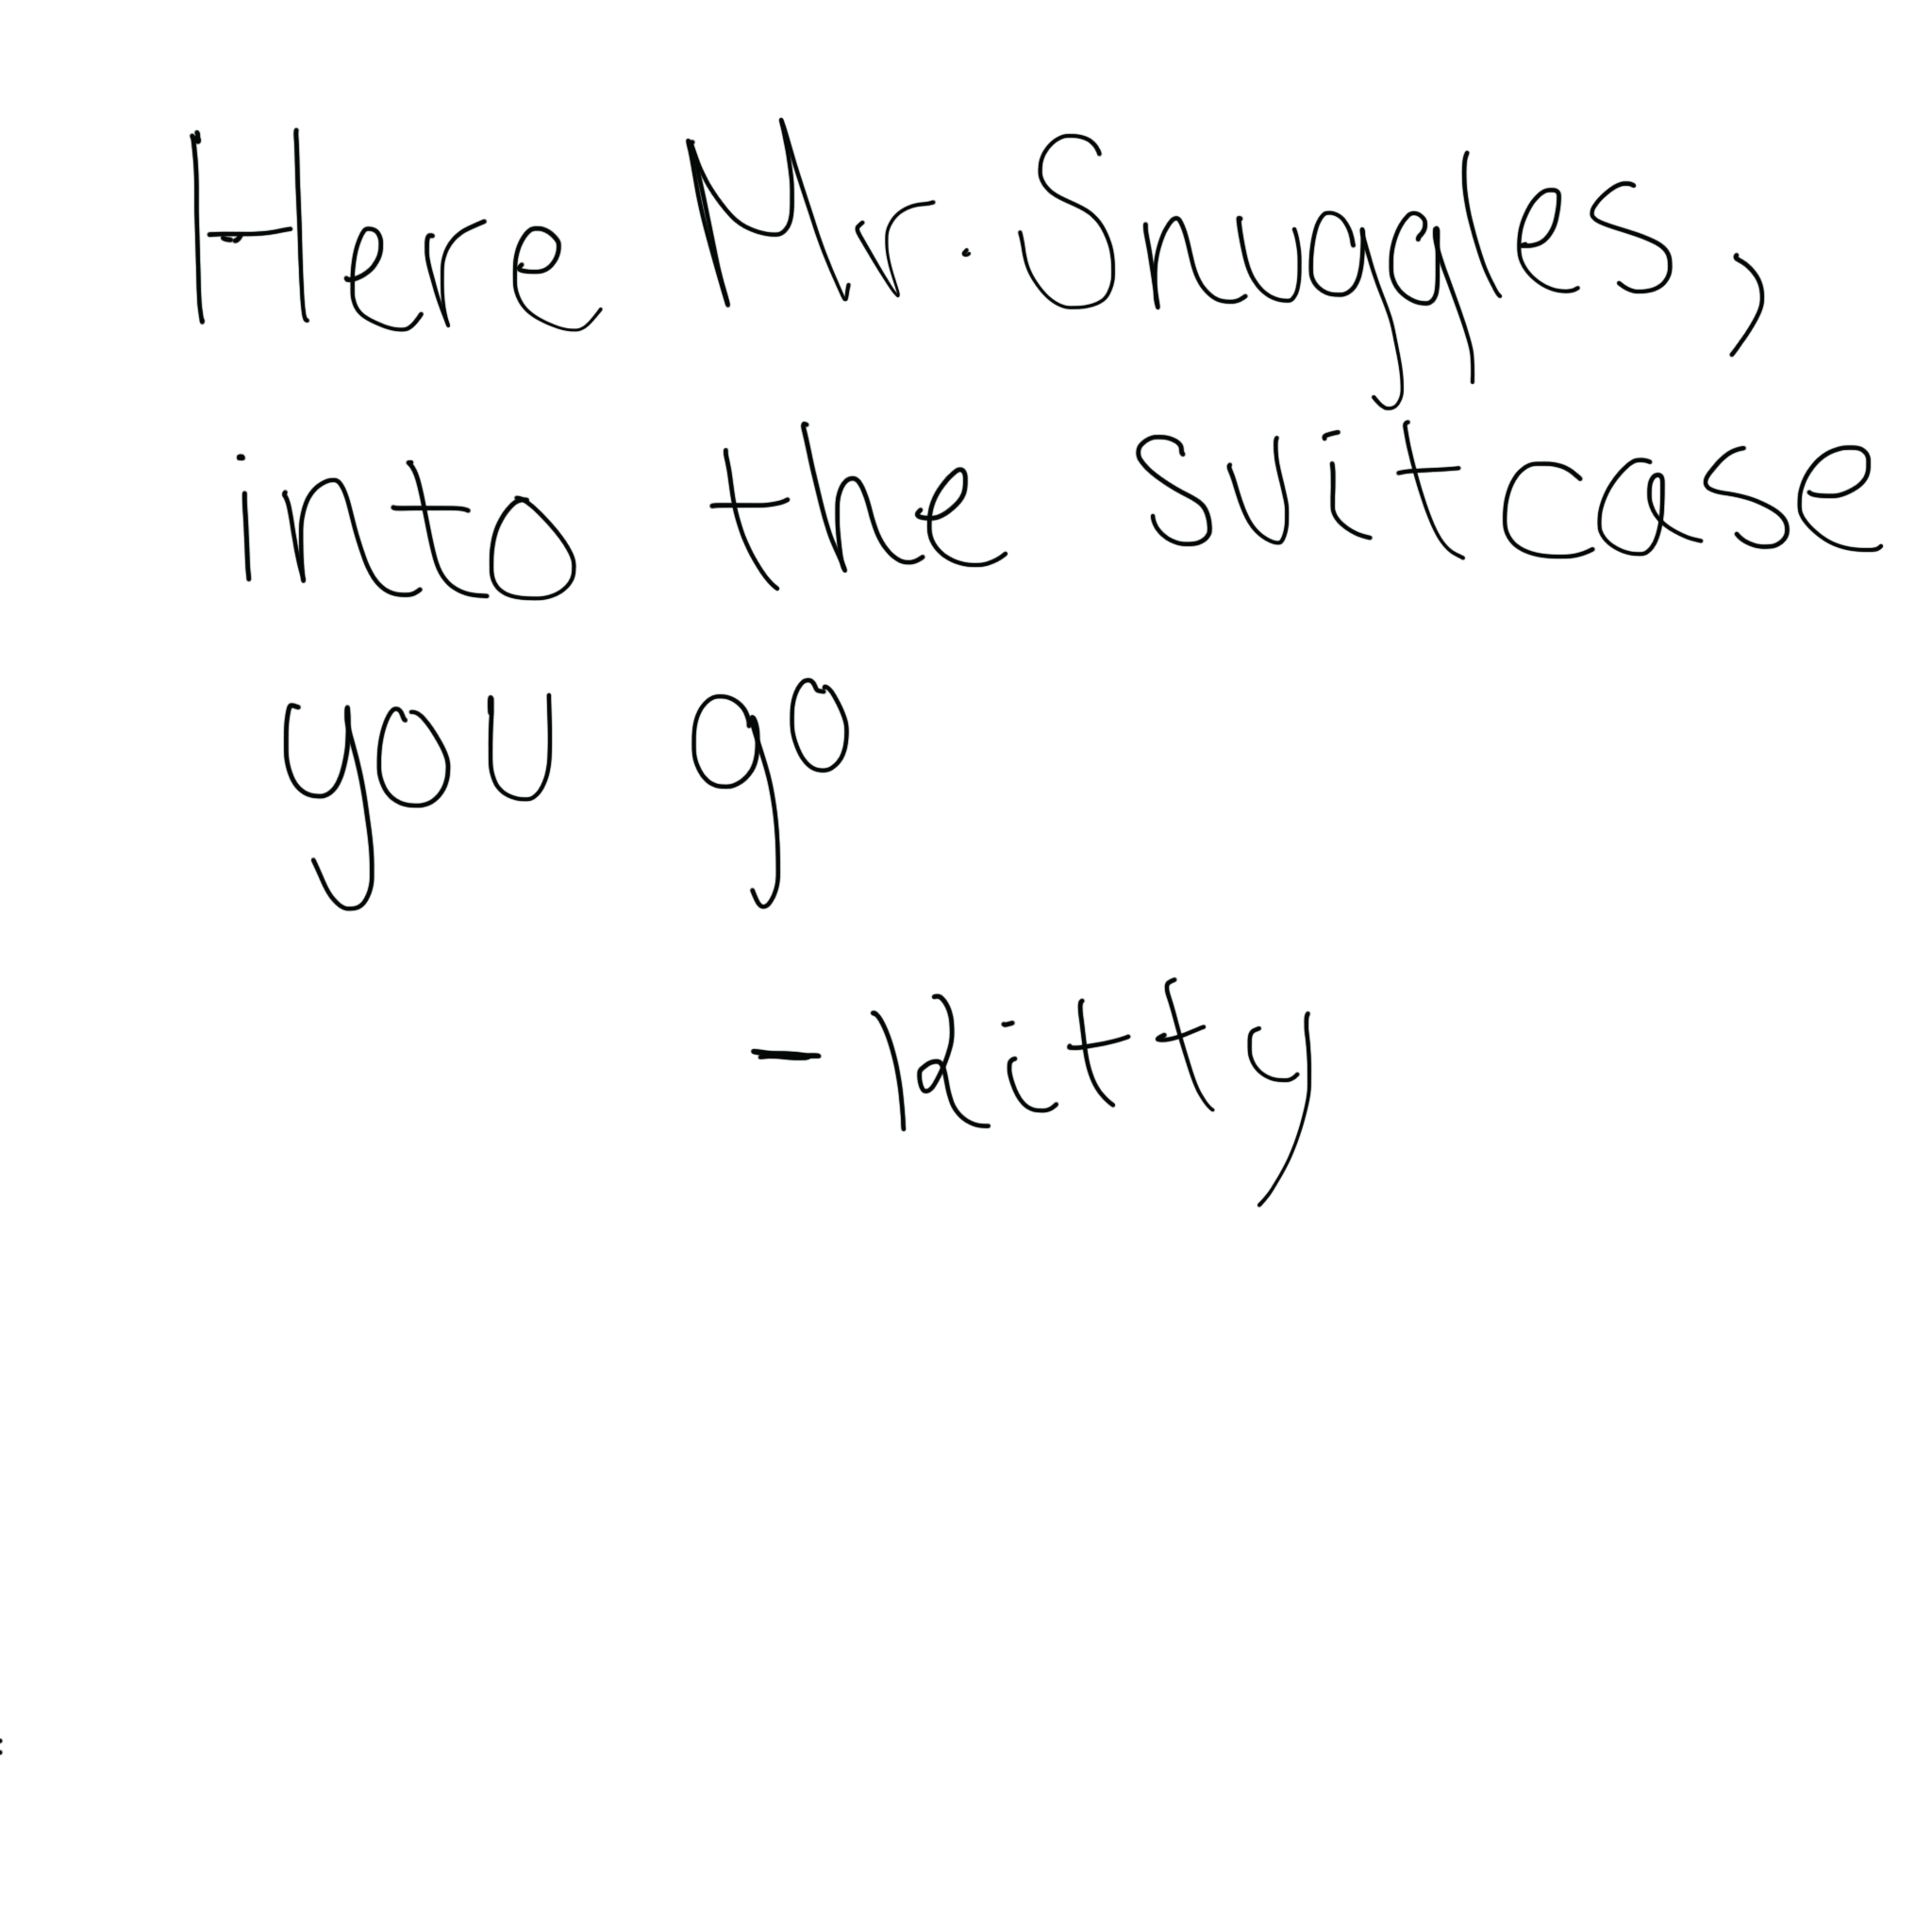 Here Mr. Snuggles,
into the suitcase
you go
- Kitty